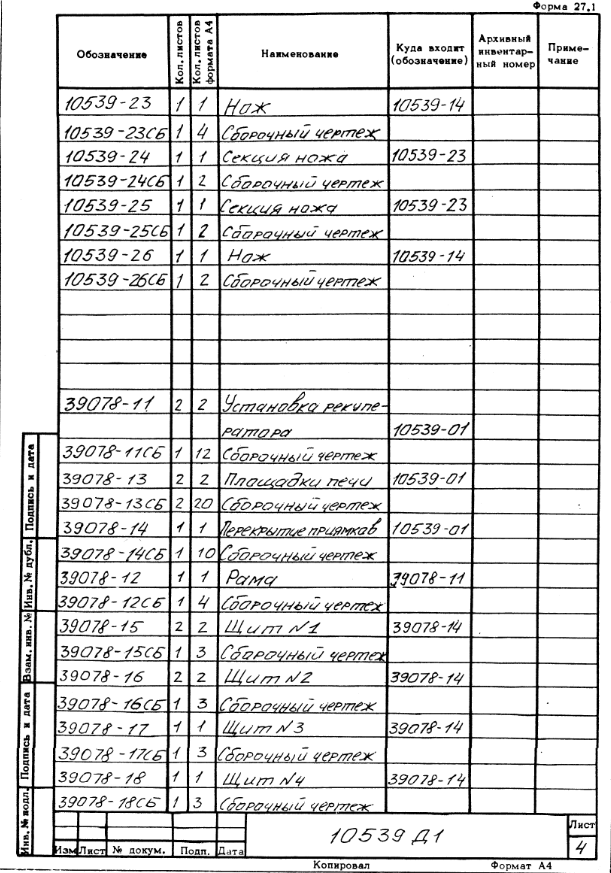 Форма 27.1
Обозначение Кол. листов Кол. листов формата А4 Наименование Куда входит (обозначение) Архивный инвентарный номер Примечание
10539-23 1 1 Нож 10539-14
10539-23СБ 1 4 Сборочный чертеж
10539-24 1 1 Секция ножа 10539-23
10539-24СБ 1 2 Сборочный чертеж
10539-25 1 1 Секция ножа 10539-23
10539-25СБ 1 2 Сборочный чертеж
10539-26 1 1 Нож 10539-14
10539-26СБ 1 2 Сборочный чертеж
39078-11 2 2 Установка рекупе-
ратора 10539-01
39078-11СБ 1 12 Сборочный чертеж
39078-13 2 2 Площадки печи 10539-01
39078-13СБ 2 20 Сборочный чертеж
39078-14 1 1 Перекрытие приямков 10539-01
39078-14СБ 1 10 Сборочный чертеж
39078-12 1 1 Рама 39078-11
39078-12СБ 1 4 Сборочный чертеж
39078-15 2 2 Щит N1 39078-14
39078-15СБ 1 3 Сборочный чертеж
39078-16 2 2 Щит N2 39078-14
39078-16СБ 1 3 Сборочный чертеж
39078-17 1 1 Щит N3 39078-14
39078-17СБ 1 3 Сборочный чертеж
39078-18 1 1 Щит N4 39078-14
39078-18СБ 1 3 Сборочный чертеж
Подпись и дата
Инв. № дубл.
Взам. инв. №
Подпись и дата
Инв. № подл.
Изм Лист № докум. Подп. Дата
10539 Д1
Лист
4
Копировал Формат А4